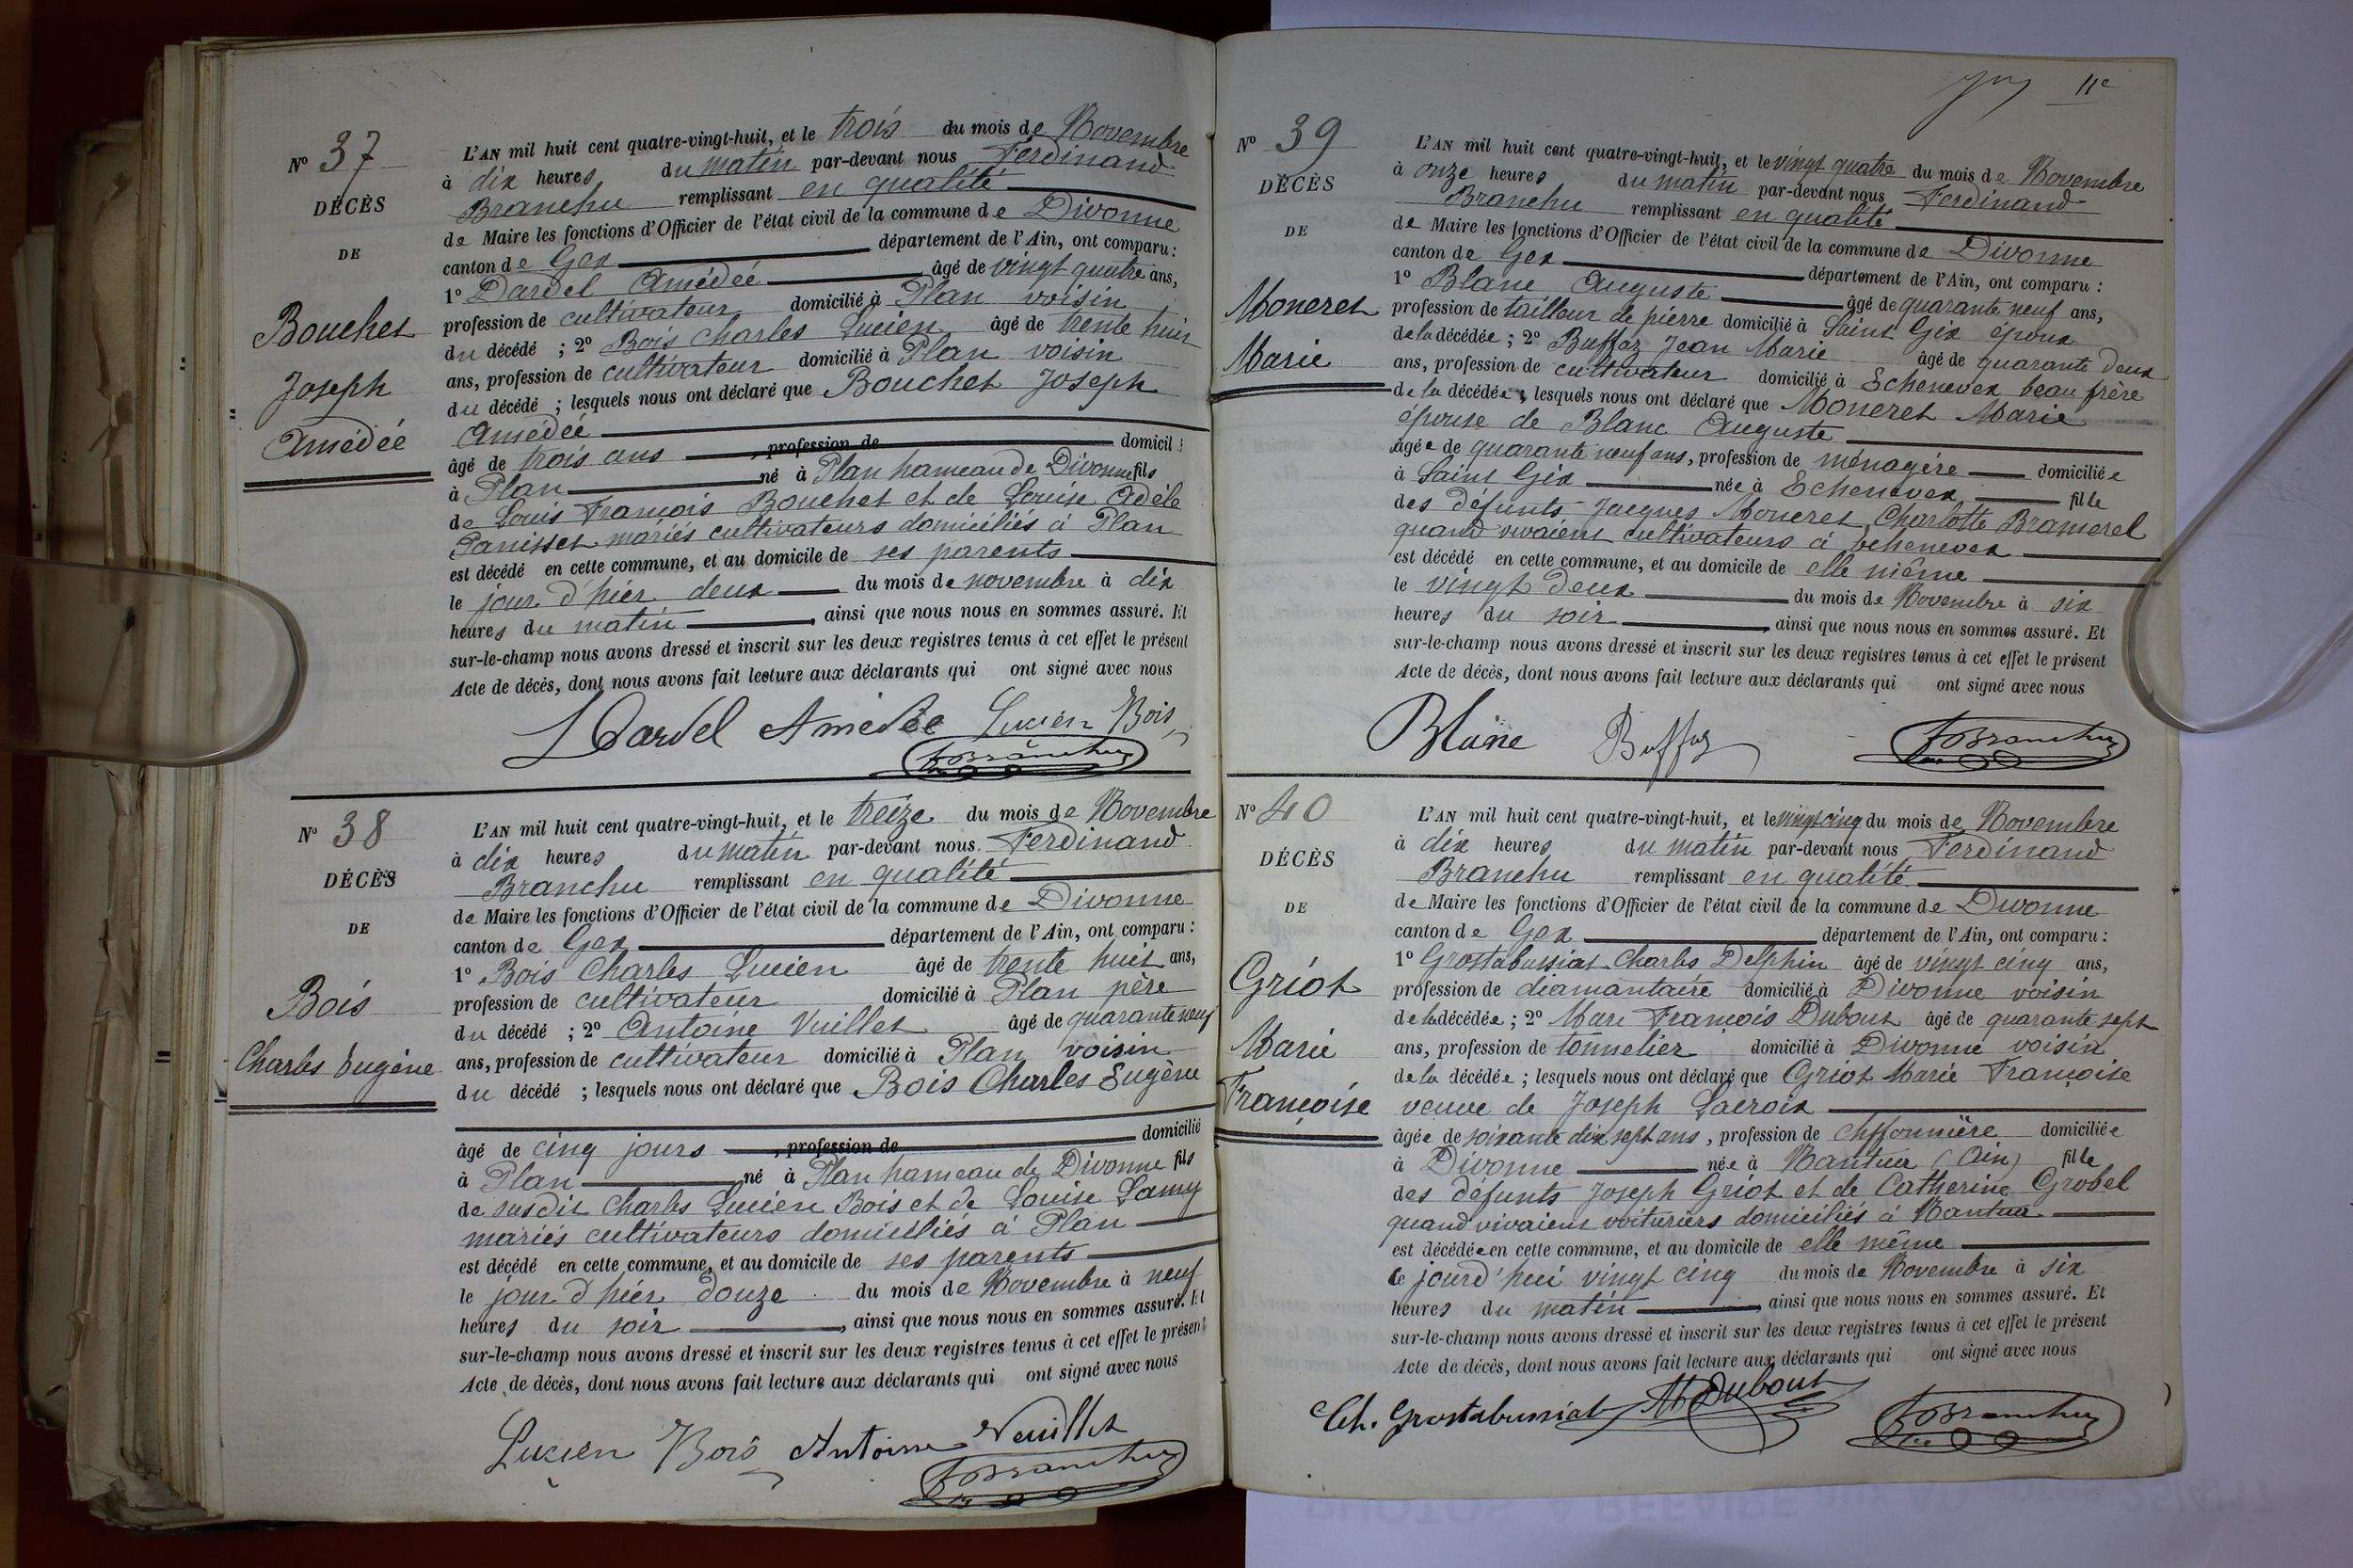 N° 37
DÉCÈS
DE
Bouchet
Joseph
Amédée
L'AN mil huit cent quatre-vingt-huit, et le trois du mois de Novembre
à dix heures du matin par-devant nous Ferdinand
Branchu remplissant en qualité
de Maire les fonctions d'Officier de l'état civil de la commune de Divonne
canton de Gex département de l'Ain, ont comparu :
1° Dardel Amédée âgé de vingt quatre ans,
profession de cultivateur domicilié à Plan voisin
du décédé ; 2° Bois Charles Lucien âgé de trente huit
ans, profession de cultivateur domicilié à Plan voisin
du décédé ; lesquels nous ont déclaré que Bouchet Joseph
Amédée
âgé de trois ans , profession de domicilié
à Plan né à Plan hameau de Divonne fils
de Louis François Bouchet et de Louise Adèle
Panisset mariés cultivateurs domiciliés à Plan
est décédé en cette commune, et au domicile de ses parents
le jour d'hier deux du mois de novembre à dix
heures du matin , ainsi que nous nous en sommes assuré. Et
sur-le-champ nous avons dressé et inscrit sur les deux registres tenus à cet effet le présent
Acte de décès, dont nous avons fait lecture aux déclarants qui ont signé avec nous
Dardel Amédée Lucien Bois
FBranchu
N° 38
DÉCÈS
DE
Bois
Charles Eugène
L'AN mil huit cent quatre-vingt-huit, et le treize du mois de Novembre
à dix heures du matin par-devant nous Ferdinand
Branchu remplissant en qualité
de Maire les fonctions d'Officier de l'état civil de la commune de Divonne
canton de Gex département de l'Ain, ont comparu :
1° Bois Charles Lucien âgé de trente huit ans,
profession de cultivateur domicilié à Plan père
du décédé ; 2° Antoine Vuillet âgé de quarante neuf
ans, profession de cultivateur domicilié à Plan voisin
du décédé ; lesquels nous ont déclaré que Bois Charles Eugène
âgé de cinq jours , profession de domicilié
à Plan né à Plan hameau de Divonne fils
de susdit Charles Lucien Bois et de Louise Lamy
mariés cultivateurs domiciliés à Plan
est décédé en cette commune, et au domicile de ses parents
le jour d'hier douze du mois de Novembre à neuf
heures du soir , ainsi que nous nous en sommes assuré. Et
sur-le-champ nous avons dressé et inscrit sur les deux registres tenus à cet effet le présent
Acte de décès, dont nous avons fait lecture aux déclarants qui ont signé avec nous
Lucien Bois Antoine Veuillet
FBranchu
11e
N° 39
DÉCÈS
DE
Moneret
Marie
L'AN mil huit cent quatre-vingt-huit, et le vingt quatre du mois de Novembre
à onze heures du matin par-devant nous Ferdinand
Branchu remplissant en qualité
de Maire les fonctions d'Officier de l'état civil de la commune de Divonne
canton de Gex département de l'Ain, ont comparu :
1° Blanc Auguste âgé de quarante neuf ans,
profession de tailleur de pierre domicilié à Saint Gix époux
de la décédée ; 2° Buffaz Jean Marie âgé de quarante deux
ans, profession de cultivateur domicilié à Echenevex beau frère
de la décédée ; lesquels nous ont déclaré que Moneret Marie
épouse de Blanc Auguste
âgée de quarante neuf ans, profession de ménagère domiciliée
à Saint Gix née à Echenevex fille
des défunts Jacques Moneret, Charlotte Bramerel
quand vivaient cultivateurs à Echenevex
est décédé en cette commune, et au domicile de elle même
le vingt deux du mois de Novembre à six
heures du soir , ainsi que nous nous en sommes assuré. Et
sur-le-champ nous avons dressé et inscrit sur les deux registres tenus à cet effet le présent
Acte de décès, dont nous avons fait lecture aux déclarants qui ont signé avec nous
Blanc Buffaz
FBranchu
N° 40
DÉCÈS
DE
Griot
Marie
Françoise
L'AN mil huit cent quatre-vingt-huit, et le vingt cinq du mois de Novembre
à dix heures du matin par-devant nous Ferdinand
Branchu remplissant en qualité
de Maire les fonctions d'Officier de l'état civil de la commune de Divonne
canton de Gex département de l'Ain, ont comparu :
1° Grostabussiat Charles Delphin âgé de vingt cinq ans,
profession de diamantaire domicilié à Divonne voisin
de la décédée ; 2° Marc François Dubout âgé de quarante sept
ans, profession de tonnelier domicilié à Divonne voisin
de la décédée ; lesquels nous ont déclaré que Griot Marie Françoise
veuve de Joseph Lacroix
âgée de soixante dix sept ans, profession de chiffonnière domiciliée
à Divonne née à Nantua (Ain) fille
des défunts Joseph Griot et de Catherine Grobel
quand vivaient voituriers domiciliés à Nantua
est décédée en cette commune, et au domicile de elle même
ce jourd'hui vingt cinq du mois de Novembre à six
heures du matin , ainsi que nous nous en sommes assuré. Et
sur-le-champ nous avons dressé et inscrit sur les deux registres tenus à cet effet le présent
Acte de décès, dont nous avons fait lecture aux déclarants qui ont signé avec nous
Ch. Grostabussiat M Dubout
FBranchu